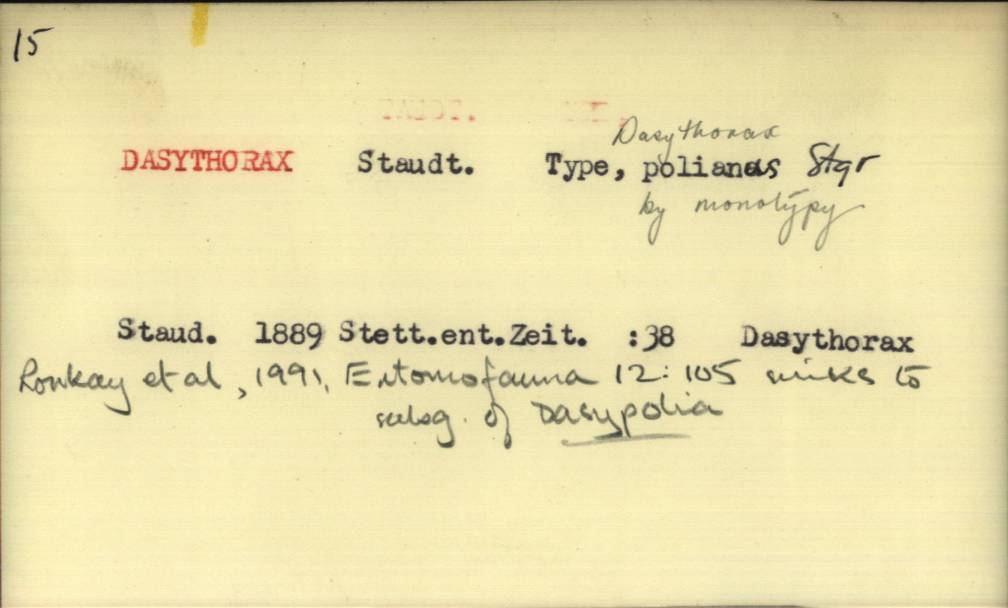 15
Dasythorax
DASYTHORAX Staudt. Type, polianas Stgr
by monotypy
Staud. 1889 Stett.ent.Zeit. :38 Dasythorax
Ronkay et al, 1991, Entomofauna 12: 105 sinks to
subg. of Dasypolia